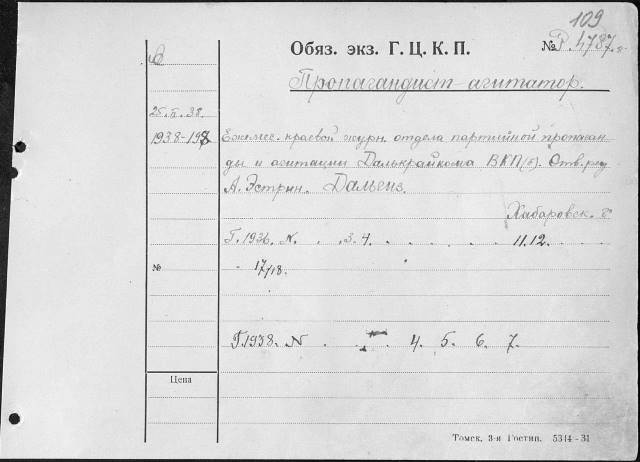 109
Обяз. экз. Г. Ц. К. П.
№ Р. 4787.
Пропагандист-агитатор.
25.II.38.
1938-198
Ежемес. краевой журн. отдела партийной пропаган-
ды и агитации Далькрайкома ВКП(б). Отв. ред
А. Эстрин. Дальгиз.
Хабаровск. 8°
Г. 1936. N. . . 3.4. . . . . . . 11.12. .
№
" 17/18.
Г. 1938. N . . . 4. 5. 6. 7.
Цена
Томск. 3-я Гостип. 5314-31